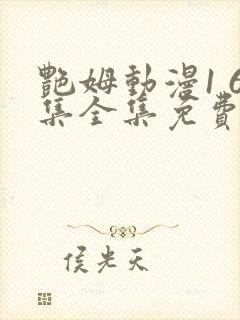 艷姆動漫1 6
集全集免費
侯光天